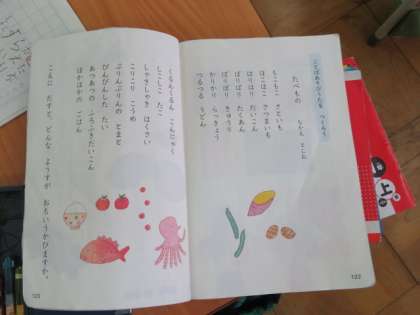 ことばあそびうたを つくろう
たべもの
なかえ としお
もこもこ さといも
ほこほこ さつまいも
はりはり だいこん
ぱりぱり たくあん
ぽりぽり きゅうり
かりかり らっきょう
つるつる うどん
122
くるんくるん こんにゃく
しこしこ たこ
しゃきしゃき はくさい
こりこり こうめ
ぷりんぷりんの とまと
ぴんぴんした たい
あつあつの ふろふきだいこん
ほかほかの ごはん
こえに だすと、どんな ようすが おもいうかびますか。
123
上